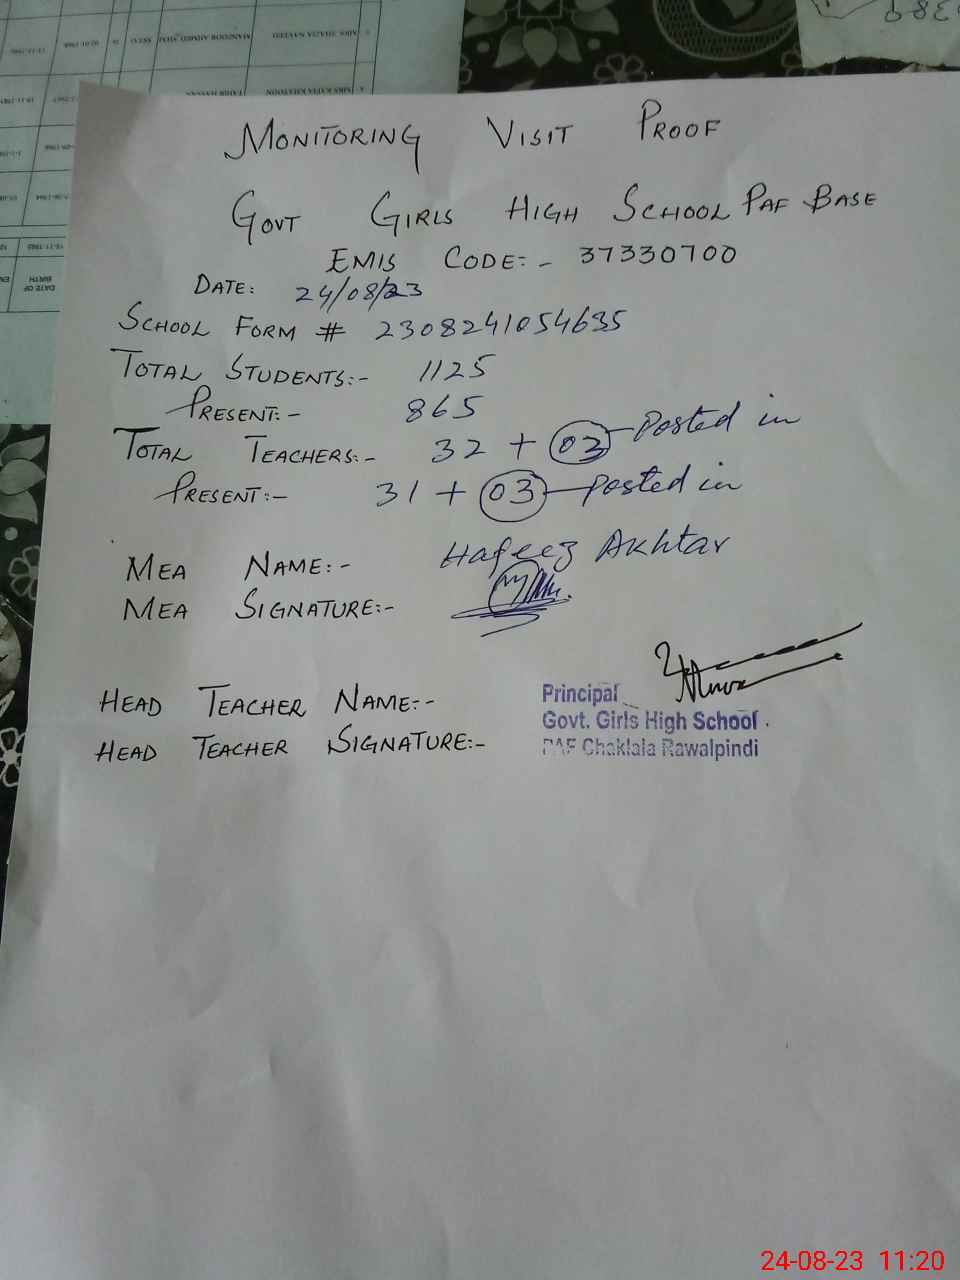 MONITORING VISIT PROOF
GOVT GIRLS HIGH SCHOOL PAF BASE
EMIS CODE:- 37330700
DATE: 24/08/23
SCHOOL FORM # 2308241054635
TOTAL STUDENTS:- 1125
PRESENT:- 865
TOTAL TEACHERS:- 32 + 03 Posted in
PRESENT:- 31 + 03 Posted in
MEA NAME:- Hafeez Akhtar
MEA SIGNATURE:-
HEAD TEACHER NAME:-
HEAD TEACHER SIGNATURE:-
Principal
Govt. Girls High School
PAF Chaklala Rawalpindi
24-08-23 11:20